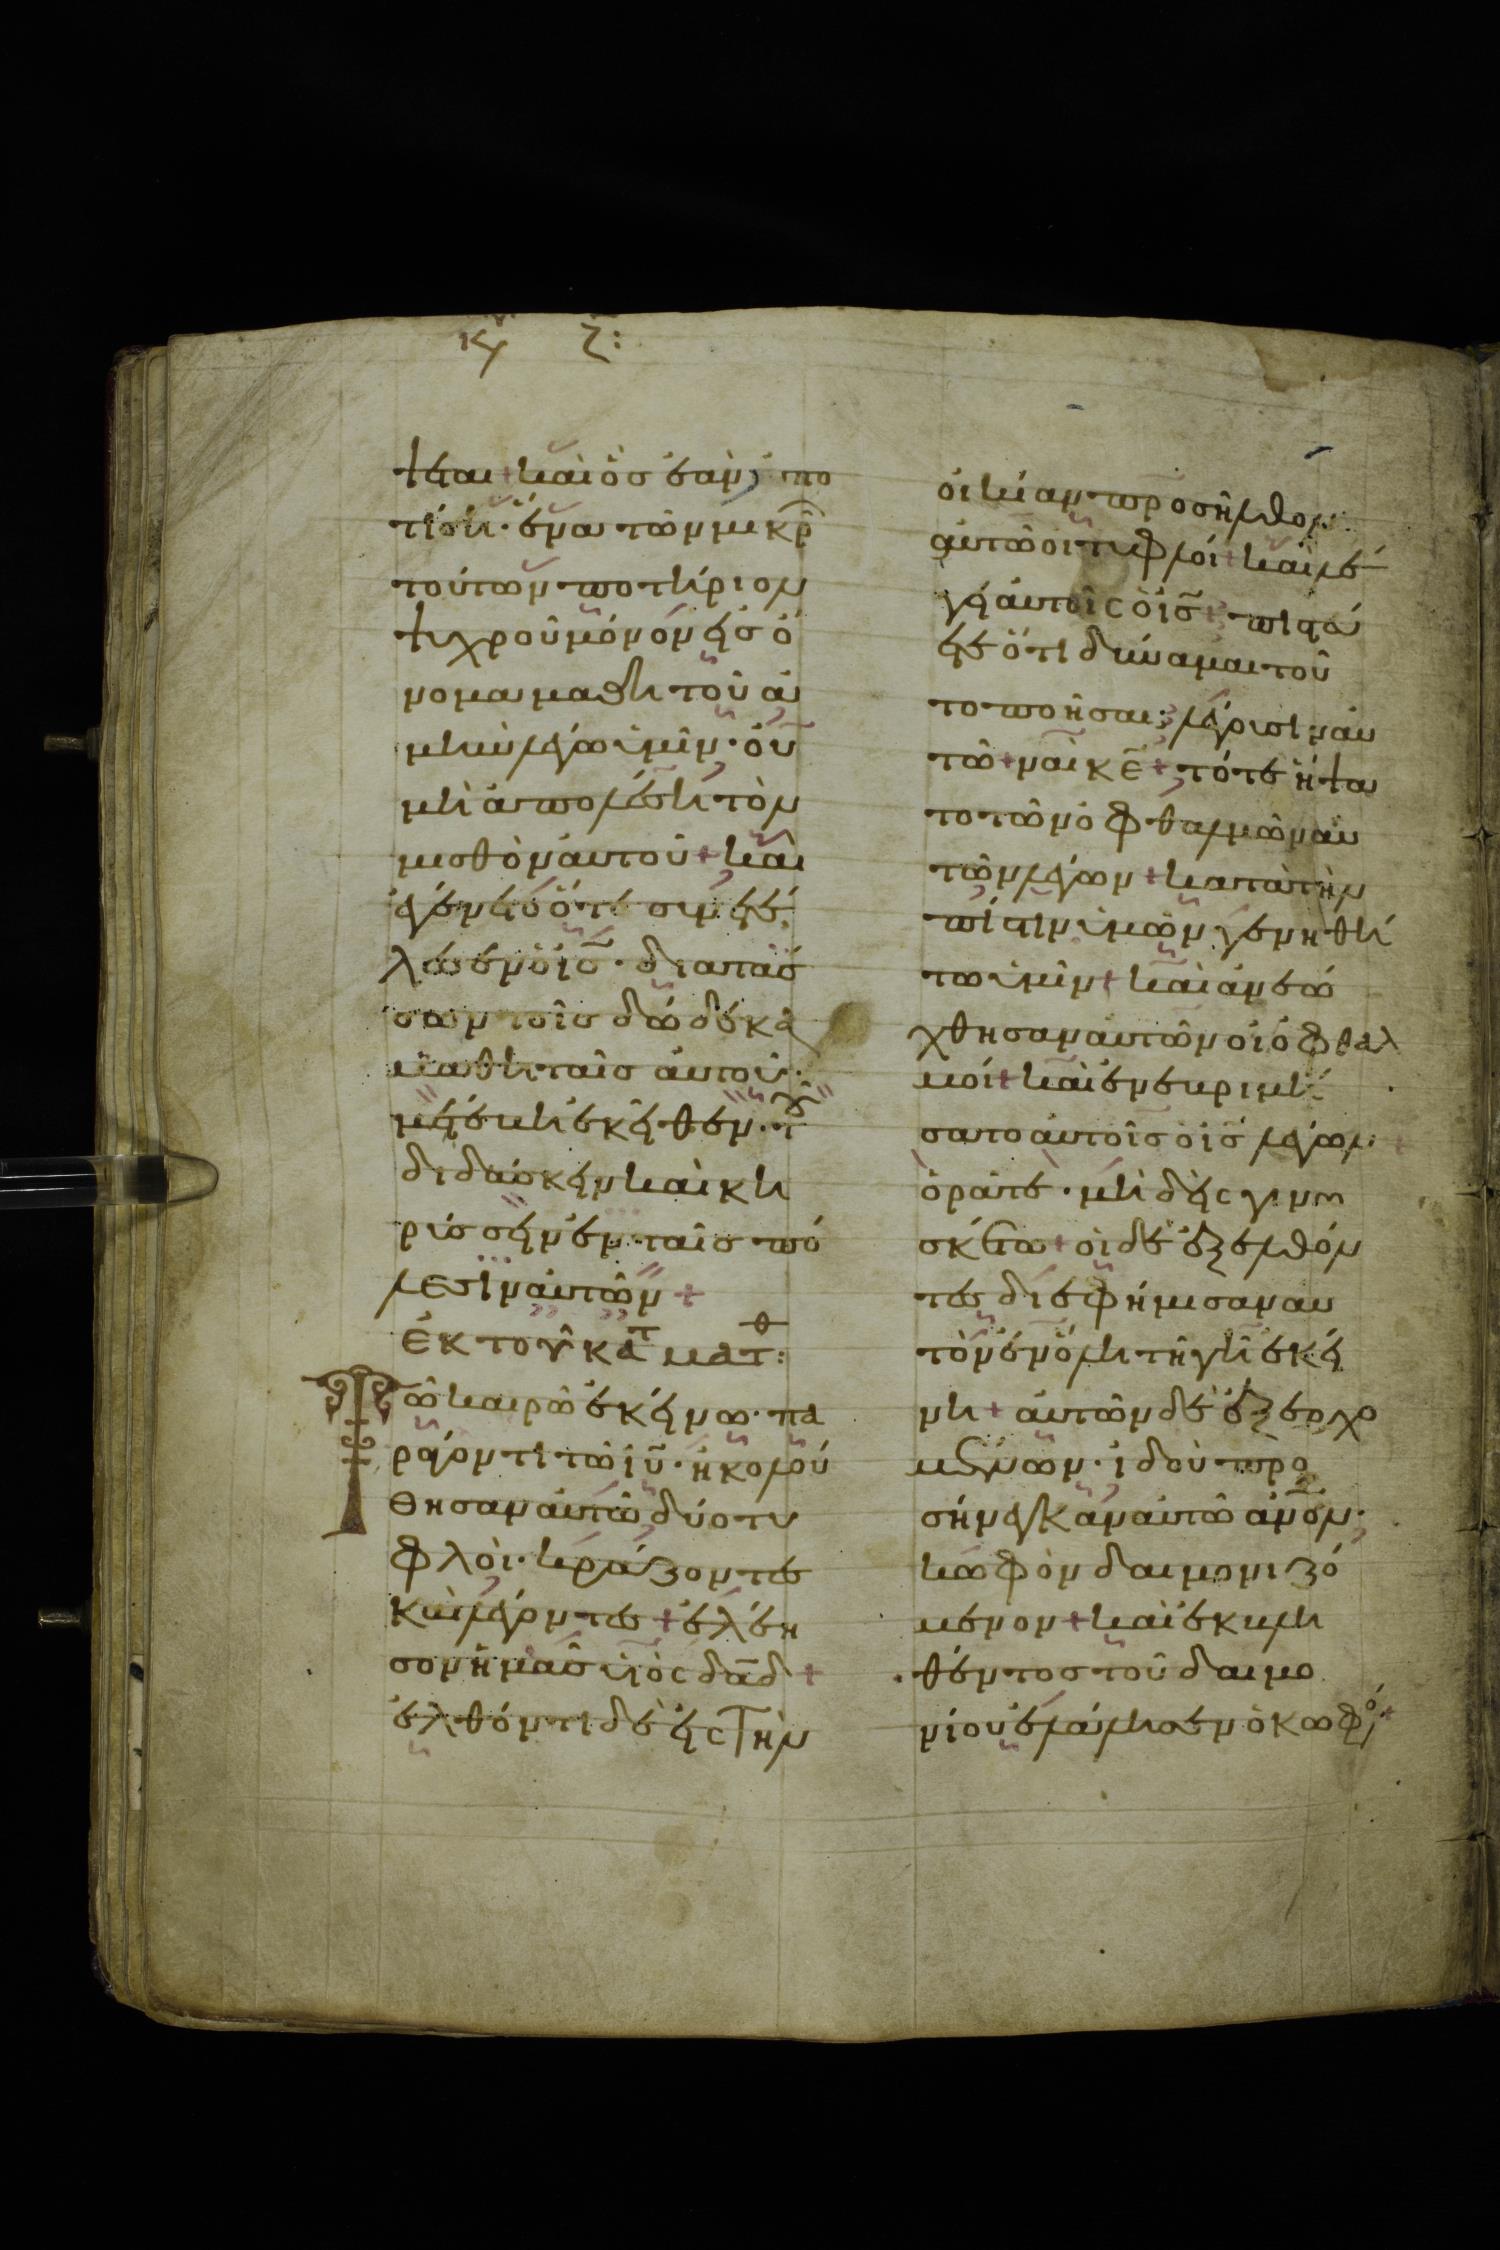 κυ ζ:
ψεται + καὶ ὃσ ἐὰν πο
τίσει · ἕνα τῶν μικρ
τούτων ποτήριον
ψυχροῦ μόνον εἰσ ὄ
νομα μαθητοῦ ἀ
μὴν λέγω ὑμῖν · οὐ
μὴ ἀπολέσει τὸν
μισθὸν αὐτοῦ + καὶ
ἐγένετο ὅτε συνετέ
λεσεν ὁ ις̅ · διατάσ
σων τοῖσ δώδεκα
μαθηταῖσ αὐτοῦ ·
μετέβη ἐκεῖθεν · τ
διδάσκειν καὶ κη
ρύσσειν ἐν ταῖσ πό
λεσιν αὐτῶν +
ἐκ τοῦ κατ ματθ :
Τῶ καιρῶ ἐκείνω · πα
ράγοντι τῶ ιυ̅ · ἠκολού
θησαν αὐτῶ δύο τυ
φλοὶ · κράζοντεσ
καὶ λέγοντεσ + ἐλέη
σον ἡμᾶσ υἱὸσ δα̅δ +
ἐλθόντι δὲ εἰσ τὴν
οἰκίαν προσῆλθον
αὐτῶ οἱ τυφλοί + καὶ λέ
γει αὐτοῖσ ὁ ις̅ + πιστεύ
ετε ὅτι δύναμαι τοῦ
το ποιῆσαι ; λέγουσιν αὐ
τῶ + ναὶ κε̅ + τότε ἥψα
το τῶν ὀφθαλμῶν αὐ
τῶν λέγων + κατὰ τὴν
πίστιν ὑμῶν γενηθή
τω ὑμῖν + καὶ ἀνεώ
χθησαν αὐτῶν οἱ ὀφθαλ
μοί + καὶ ἐνεβριμή
σατο αὐτοῖσ ὁ ις̅ λέγων :
ὁρᾶτε · μηδεὶσ γινω
σκέτω + οἱ δὲ ἐξελθόν
τεσ διεφήμισαν αυ
τὸν ἐν ὅλη τῆ γῆ ἐκεί
νη + αὐτῶν δὲ ἐξερχο
μένων · ἰδοὺ προ
σήνεγκαν αὐτῶ ἄν̅ον ·
κωφὸν δαιμονιζό
μενον + καὶ ἐκβλη
θέντοσ τοῦ δαιμο
νίου ἐλάλησεν ὁ κωφό +